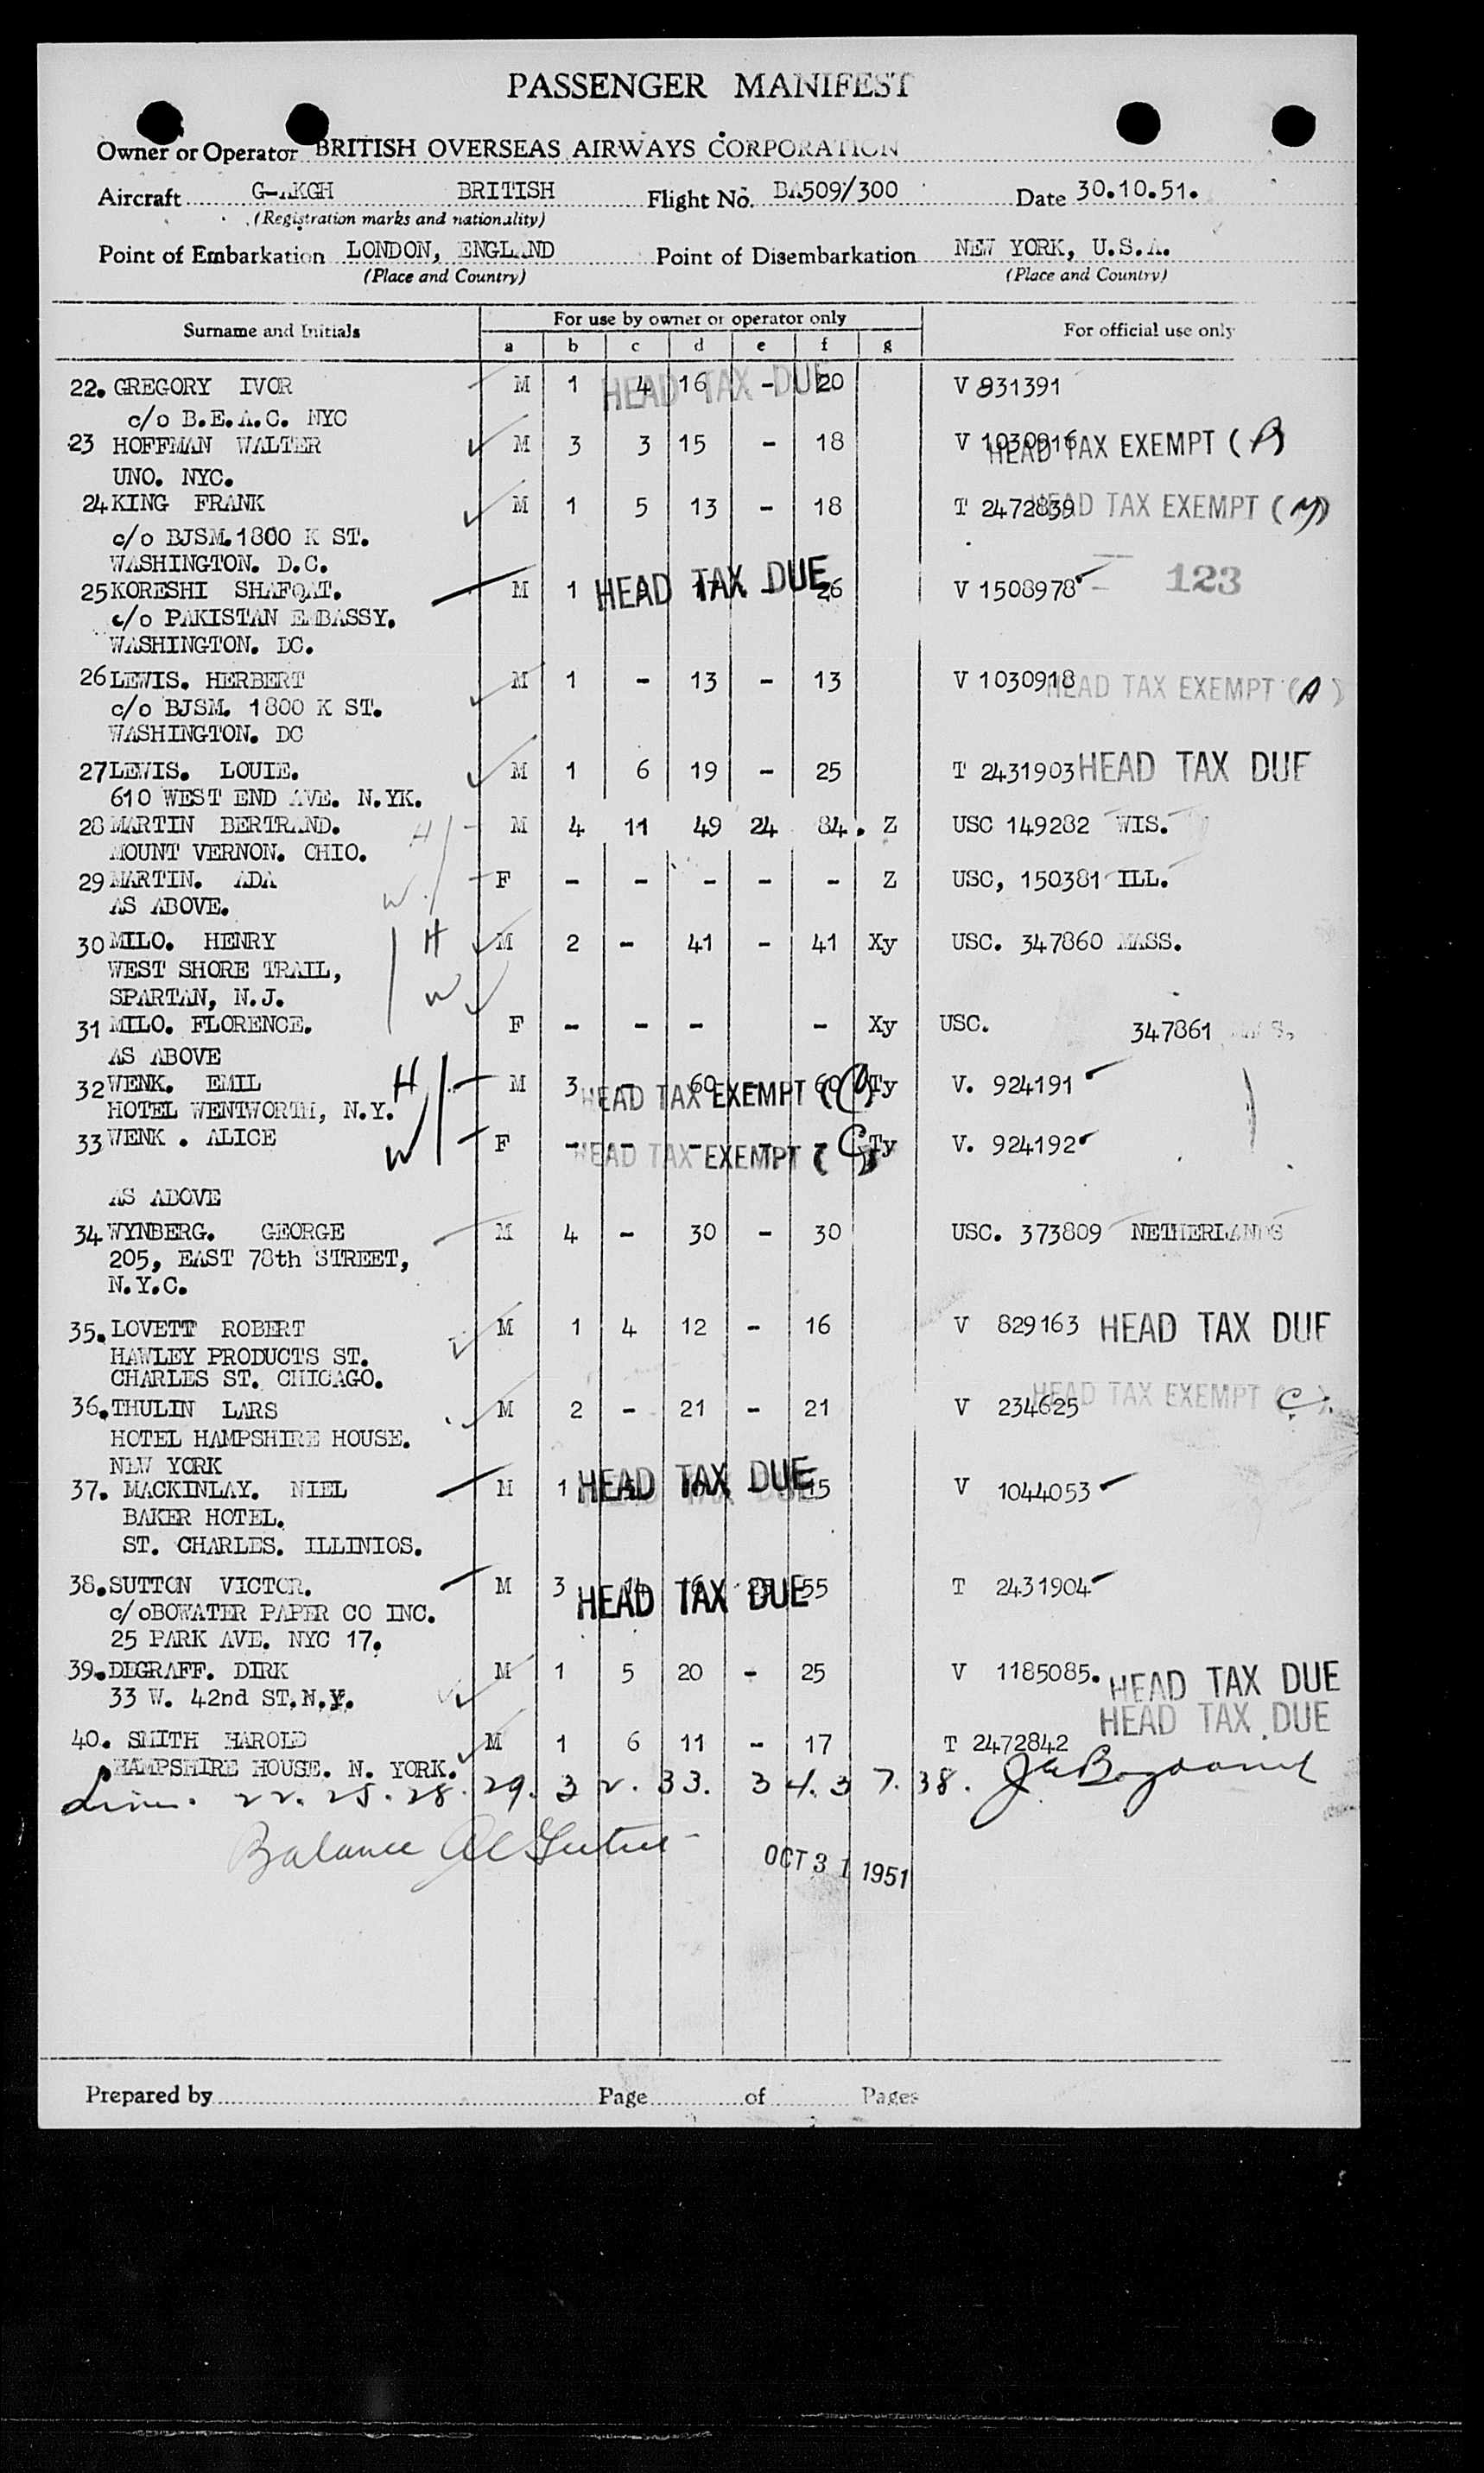 PASSENGER MANIFEST
Owner or Operator BRITISH OVERSEAS AIRWAYS CORPORATION
Aircraft G-AKGH BRITISH Flight No. BA509/300 Date 30.10.51.
(Registration marks and nationality)
Point of Embarkation LONDON, ENGLAND Point of Disembarkation NEW YORK, U.S.A.
(Place and Country) (Place and Country)
Surname and Initials For use by owner or operator only For official use only
a b c d e f g
22. GREGORY IVOR M 1 4 16 - 20 V 831391
HEAD TAX DUE
c/o B.E.A.C. NYC
23 HOFFMAN WALTER M 3 3 15 - 18 V 1030916 HEAD TAX EXEMPT ( )
UNO. NYC.
24 KING FRANK M 1 5 13 - 18 T 2472839 HEAD TAX EXEMPT ( )
c/o BJSM. 1800 K ST.
WASHINGTON. D.C.
25 KORESHI SHAFQAT. M 1 17 - 26 V 1508978 - 123
HEAD TAX DUE
c/o PAKISTAN EMBASSY.
WASHINGTON. DC.
26 LEWIS. HERBERT M 1 - 13 - 13 V 1030918 HEAD TAX EXEMPT (A)
c/o BJSM. 1800 K ST.
WASHINGTON. DC
27 LEWIS. LOUIE. M 1 6 19 - 25 T 2431903 HEAD TAX DUE
610 WEST END AVE. N.YK.
28 MARTIN BERTRAND. H M 4 11 49 24 84. Z USC 149282 WIS.
MOUNT VERNON. OHIO.
29 MARTIN. ADA W. F - - - - - Z USC, 150381 ILL.
AS ABOVE.
30 MILO. HENRY H M 2 - 41 - 41 Xy USC. 347860 MASS.
WEST SHORE TRAIL,
SPARTAN, N.J. W
31 MILO. FLORENCE. F - - - - Xy USC. 347861 MASS,
AS ABOVE
32 WENK. EMIL H M 3 - 60 - 60 Ty V. 924191
HEAD TAX EXEMPT (C)
HOTEL WENTWORTH, N.Y.
33 WENK . ALICE W F - - - - - Ty V. 924192
HEAD TAX EXEMPT (C)
AS ABOVE
34 WYNBERG. GEORGE M 4 - 30 - 30 USC. 373809 NETHERLANDS
205, EAST 78th STREET,
N.Y.C.
35. LOVETT ROBERT M 1 4 12 - 16 V 829163 HEAD TAX DUE
HAWLEY PRODUCTS ST.
CHARLES ST. CHICAGO.
36. THULIN LARS M 2 - 21 - 21 V 234625 HEAD TAX EXEMPT (C).
HOTEL HAMPSHIRE HOUSE.
NEW YORK
37. MACKINLAY. NIEL M 1 HEAD TAX DUE V 1044053
BAKER HOTEL.
ST. CHARLES. ILLINIOS.
38. SUTTON VICTOR. M 3 HEAD TAX DUE 55 T 2431904
c/oBOWATER PAPER CO INC.
25 PARK AVE. NYC 17.
39. DEGRAFF. DIRK M 1 5 20 - 25 V 1185085. HEAD TAX DUE
33 W. 42nd ST.N.Y.
HEAD TAX DUE
40. SMITH HAROLD M 1 6 11 - 17 T 2472842
HAMPSHIRE HOUSE. N. YORK.
22. 25. 28. 29. 32. 33. 34. 37. 38.
Balance
OCT 31 1951
Prepared by Page of Pages